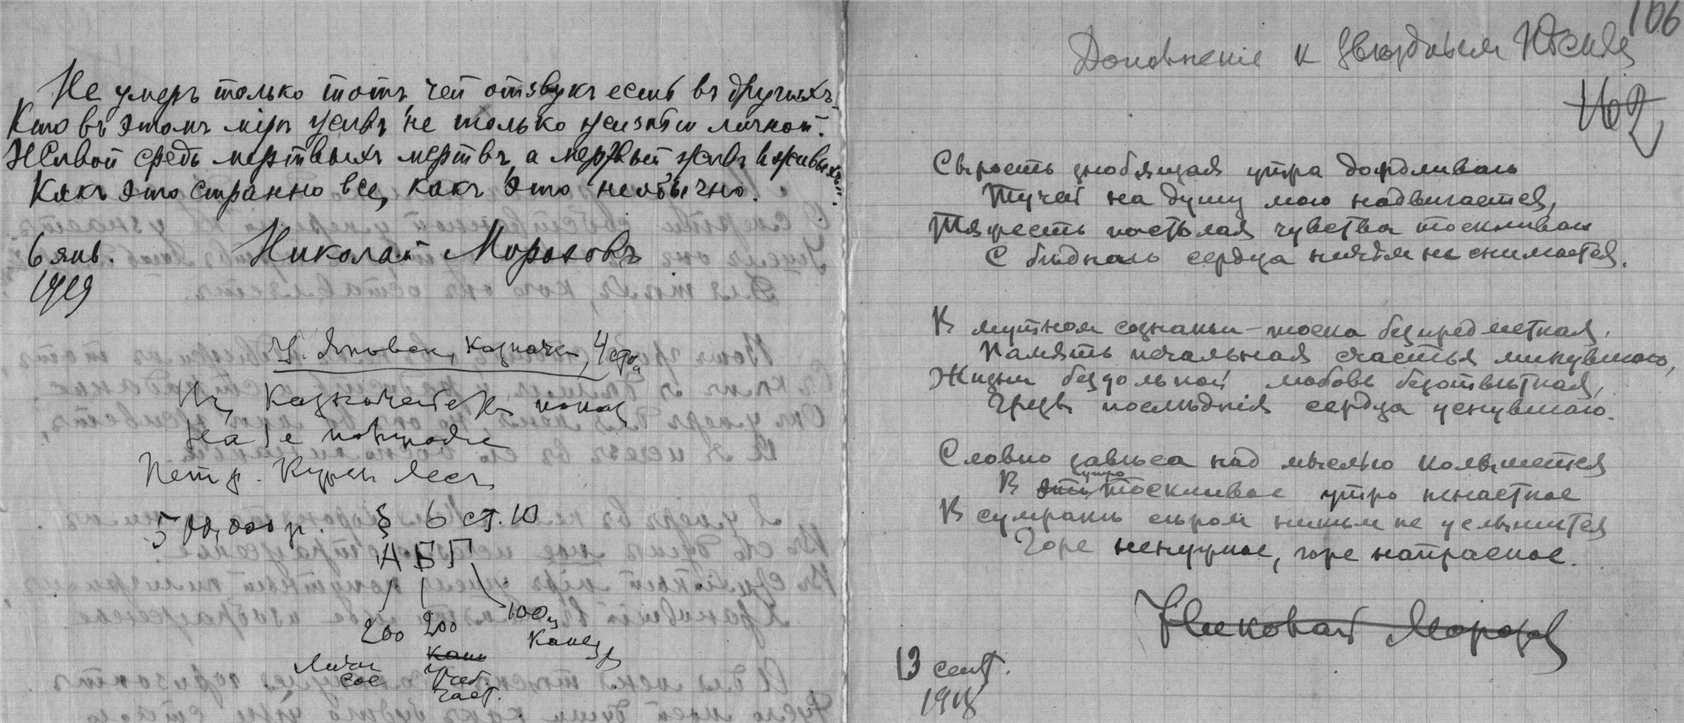 Не умеръ только тотъ, чей отзвукъ есть въ другихъ,
Кто въ этомъ міръ жилъ не только жизнью личной.
Живой средь мертвыхъ мертвъ, а мертвый живъ въ живыхъ.
Какъ это странно все, какъ это необычно.
6 янв.
1919
Николай Морозовъ
4 стр.
Из Казначейства
Петр.
500,000 р. § 6 ст. 10
А Б Г
200 200 100
Личн
сос
Учеб.
част.
106
Дополненіе к Звѣзднымъ Пѣснямъ
162
Сырость знобящая утра дождливаго
Тучей на душу мою надвигается,
Тяжесть постылая чувства тоскливаго
С бѣднаго сердца ничѣм не снимается.
К мутном сознаньи – тоска безпредметная,
Память печальная счастья минувшаго,
Жизни бездольной любовь безотвѣтная,
Грезы послѣднія сердца уснувшаго.
Словно завѣса над мыслью колышется
В утро тоскливое утро ненастное
В сумракѣ сыром никѣм не услышится
Горе ненужное, горе напрасное.
Николай Морозов
13 сент.
1918